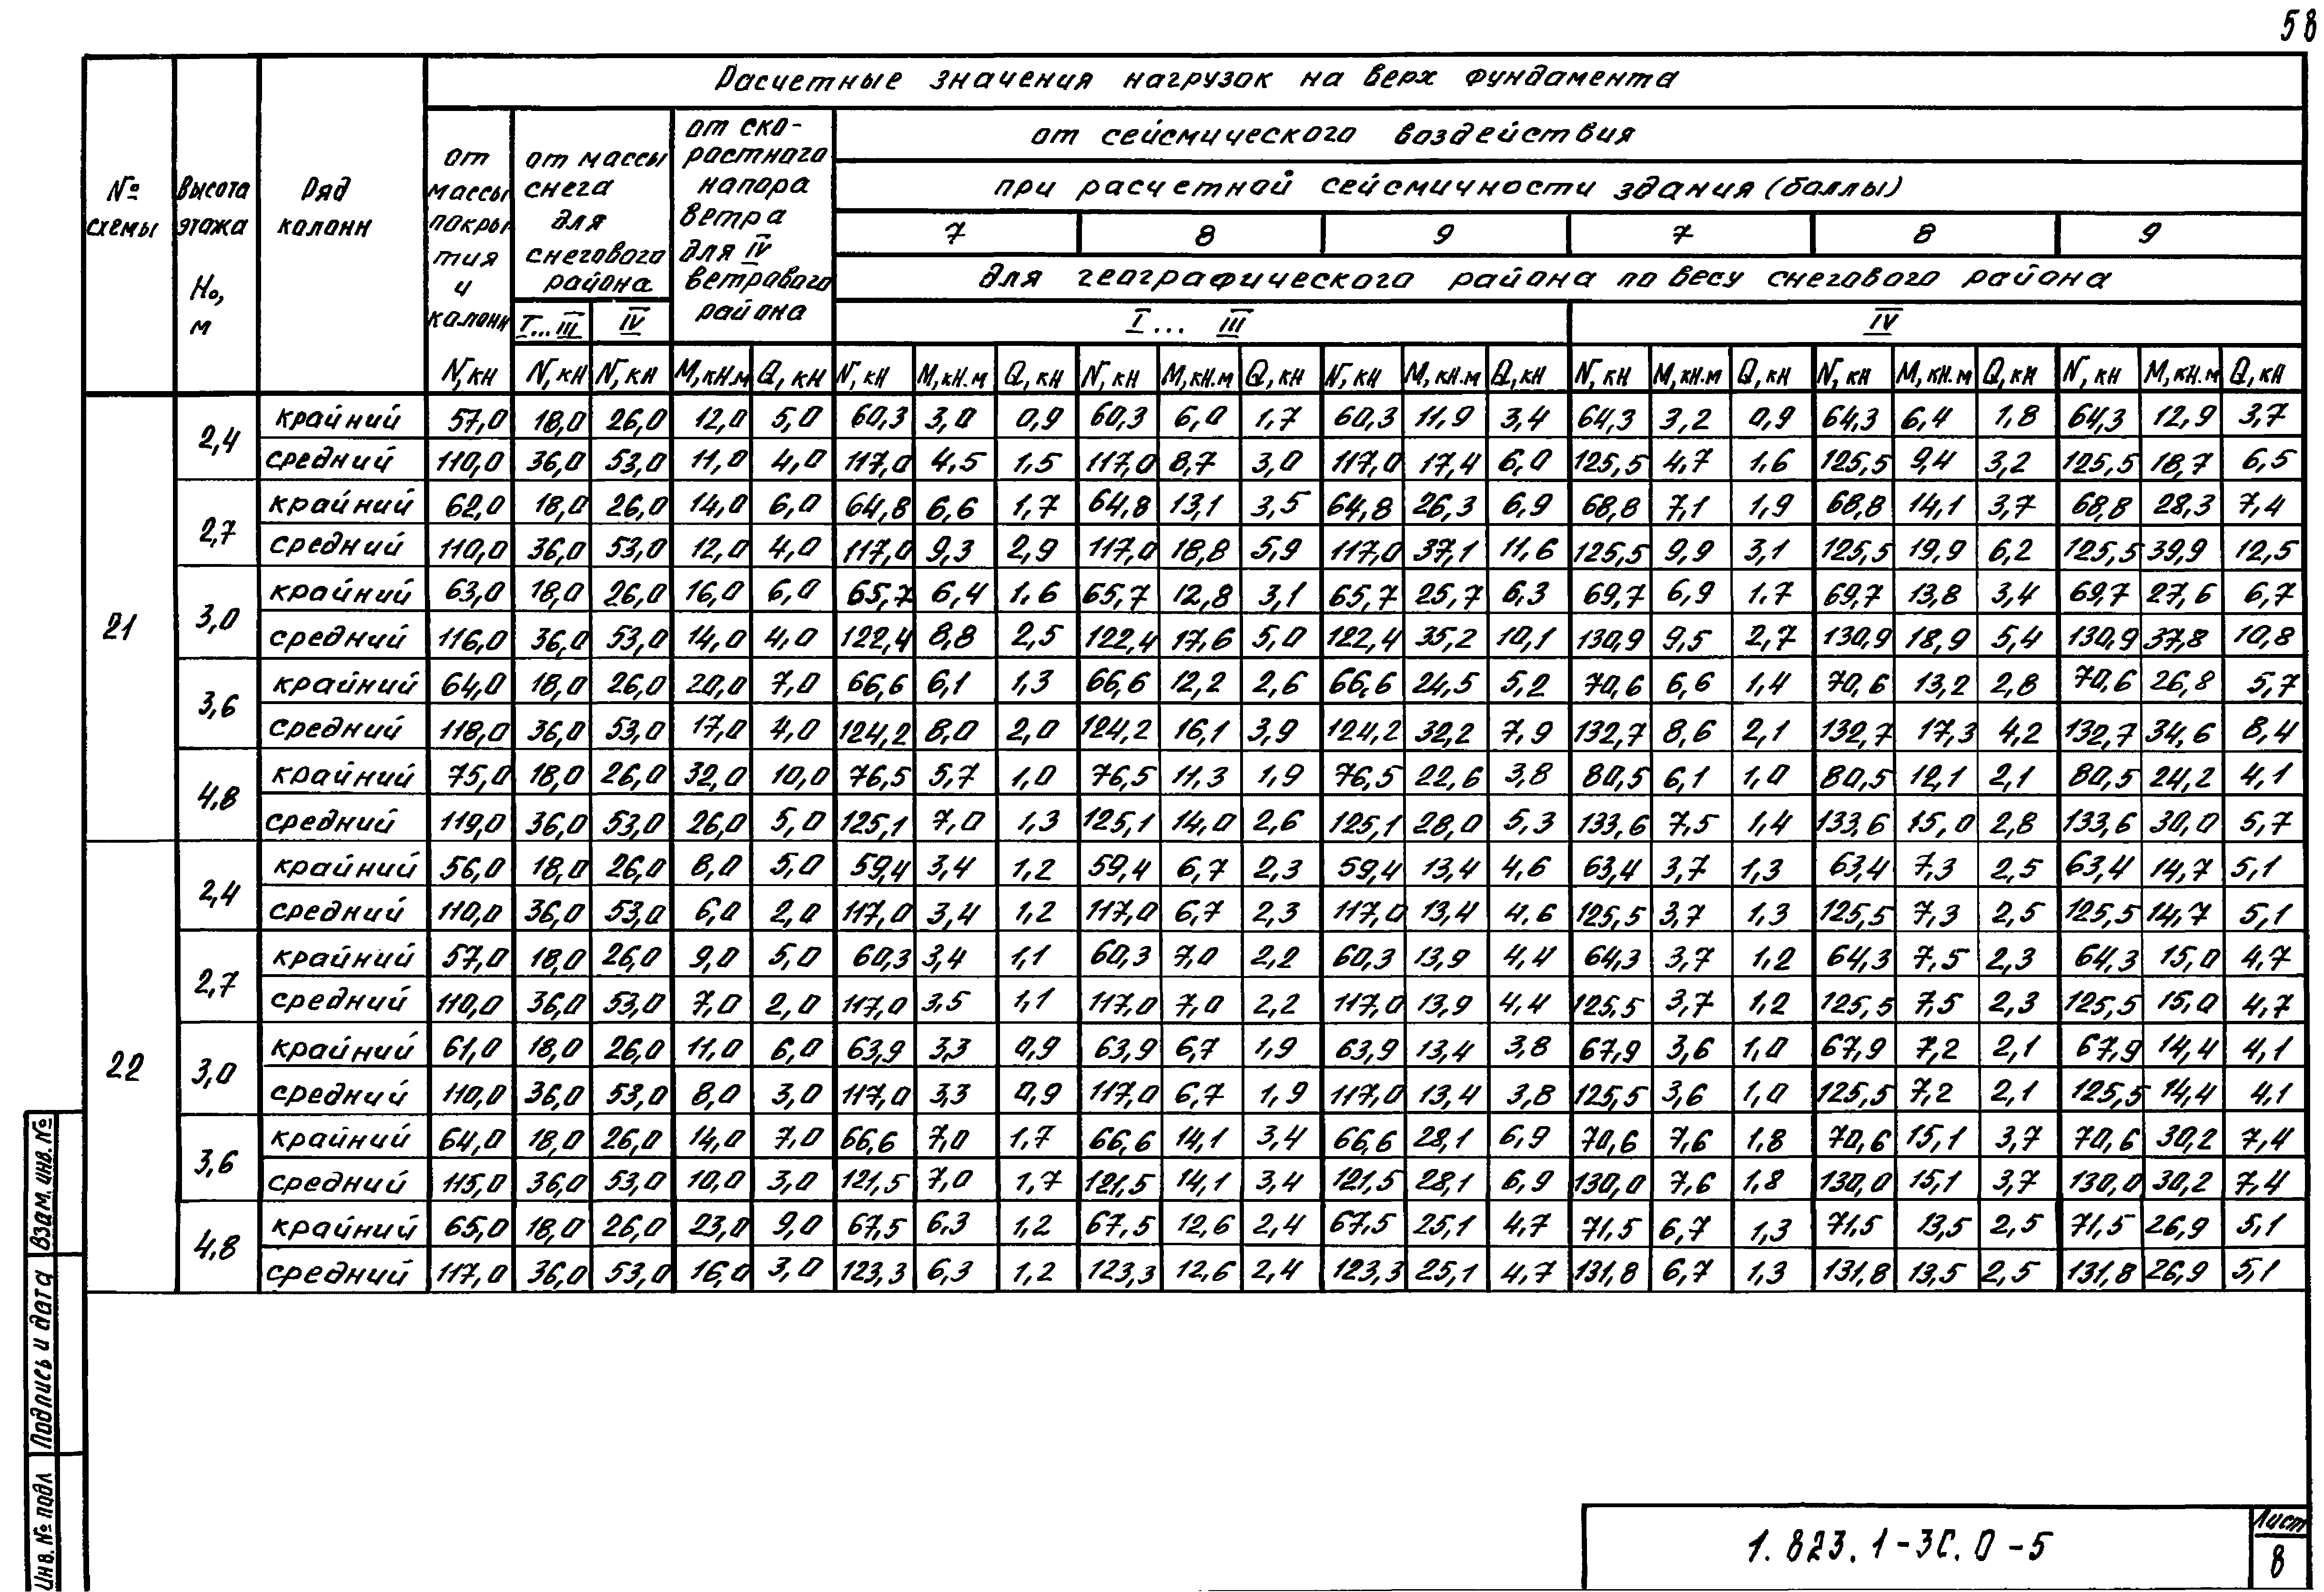 58
Расчетные значения нагрузок на верх фундамента
№ схемы
Высота этажа Н₀, м
Ряд колонн
от массы покрытия и колонн
от массы снега для снегового района
от скоростного напора ветра для IV ветрового района
от сейсмического воздействия
при расчетной сейсмичности здания (баллы)
7 8 9 7 8 9
для географического района по весу снегового района
I...III IV I...III IV
N, кН N, кН N, кН M, кН.м Q, кН N, кН M, кН.м Q, кН N, кН M, кН.м Q, кН N, кН M, кН.м Q, кН N, кН M, кН.м Q, кН N, кН M, кН.м Q, кН N, кН M, кН.м Q, кН
21
2,4 крайний 57,0 18,0 26,0 12,0 5,0 60,3 3,0 0,9 60,3 6,0 1,7 60,3 11,9 3,4 64,3 3,2 0,9 64,3 6,4 1,8 64,3 12,9 3,7
средний 110,0 36,0 53,0 11,0 4,0 117,0 4,5 1,5 117,0 8,7 3,0 117,0 17,4 6,0 125,5 4,7 1,6 125,5 9,4 3,2 125,5 18,7 6,5
2,7 крайний 62,0 18,0 26,0 14,0 6,0 64,8 6,6 1,7 64,8 13,1 3,5 64,8 26,3 6,9 68,8 7,1 1,9 68,8 14,1 3,7 68,8 28,3 7,4
средний 110,0 36,0 53,0 12,0 4,0 117,0 9,3 2,9 117,0 18,8 5,9 117,0 37,1 11,6 125,5 9,9 3,1 125,5 19,9 6,2 125,5 39,9 12,5
3,0 крайний 63,0 18,0 26,0 16,0 6,0 65,7 6,4 1,6 65,7 12,8 3,1 65,7 25,7 6,3 69,7 6,9 1,7 69,7 13,8 3,4 69,7 27,6 6,7
средний 116,0 36,0 53,0 14,0 4,0 122,4 8,8 2,5 122,4 17,6 5,0 122,4 35,2 10,1 130,9 9,5 2,7 130,9 18,9 5,4 130,9 37,8 10,8
3,6 крайний 64,0 18,0 26,0 20,0 7,0 66,6 6,1 1,3 66,6 12,2 2,6 66,6 24,5 5,2 70,6 6,6 1,4 70,6 13,2 2,8 70,6 26,8 5,7
средний 118,0 36,0 53,0 17,0 4,0 124,2 8,0 2,0 124,2 16,1 3,9 124,2 32,2 7,9 132,7 8,6 2,1 132,7 17,3 4,2 132,7 34,6 8,4
4,8 крайний 75,0 18,0 26,0 32,0 10,0 76,5 5,7 1,0 76,5 11,3 1,9 76,5 22,6 3,8 80,5 6,1 1,0 80,5 12,1 2,1 80,5 24,2 4,1
средний 119,0 36,0 53,0 26,0 5,0 125,1 7,0 1,3 125,1 14,0 2,6 125,1 28,0 5,3 133,6 7,5 1,4 133,6 15,0 2,8 133,6 30,0 5,7
22
2,4 крайний 56,0 18,0 26,0 8,0 5,0 59,4 3,4 1,2 59,4 6,7 2,3 59,4 13,4 4,6 63,4 3,7 1,3 63,4 7,3 2,5 63,4 14,7 5,1
средний 110,0 36,0 53,0 6,0 2,0 117,0 3,4 1,2 117,0 6,7 2,3 117,0 13,4 4,6 125,5 3,7 1,3 125,5 7,3 2,5 125,5 14,7 5,1
2,7 крайний 57,0 18,0 26,0 9,0 5,0 60,3 3,4 1,1 60,3 7,0 2,2 60,3 13,9 4,4 64,3 3,7 1,2 64,3 7,5 2,3 64,3 15,0 4,7
средний 110,0 36,0 53,0 7,0 2,0 117,0 3,5 1,1 117,0 7,0 2,2 117,0 13,9 4,4 125,5 3,7 1,2 125,5 7,5 2,3 125,5 15,0 4,7
3,0 крайний 61,0 18,0 26,0 11,0 6,0 63,9 3,3 0,9 63,9 6,7 1,9 63,9 13,4 3,8 67,9 3,6 1,0 67,9 7,2 2,1 67,9 14,4 4,1
средний 110,0 36,0 53,0 8,0 3,0 117,0 3,3 0,9 117,0 6,7 1,9 117,0 13,4 3,8 125,5 3,6 1,0 125,5 7,2 2,1 125,5 14,4 4,1
3,6 крайний 64,0 18,0 26,0 14,0 7,0 66,6 7,0 1,7 66,6 14,1 3,4 66,6 28,1 6,9 70,6 7,6 1,8 70,6 15,1 3,7 70,6 30,2 7,4
средний 115,0 36,0 53,0 10,0 3,0 121,5 7,0 1,7 121,5 14,1 3,4 121,5 28,1 6,9 130,0 7,6 1,8 130,0 15,1 3,7 130,0 30,2 7,4
4,8 крайний 65,0 18,0 26,0 23,0 9,0 67,5 6,3 1,2 67,5 12,6 2,4 67,5 25,1 4,7 71,5 6,7 1,3 71,5 13,5 2,5 71,5 26,9 5,1
средний 117,0 36,0 53,0 16,0 3,0 123,3 6,3 1,2 123,3 12,6 2,4 123,3 25,1 4,7 131,8 6,7 1,3 131,8 13,5 2,5 131,8 26,9 5,1
Взам. инв. №
Подпись и дата
Инв. № подл
1.823.1-3С.0-5
Лист
8